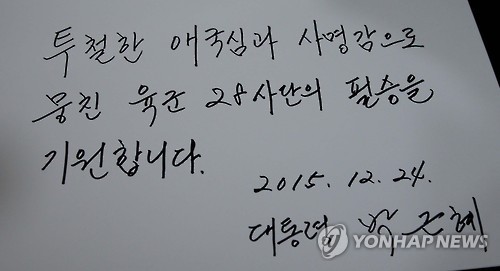 투철한 애국심과 사명감으로
뭉친 육군 28사단의 필승을
기원합니다.
2015. 12. 24.
대통령 박근혜
YONHAP NEWS